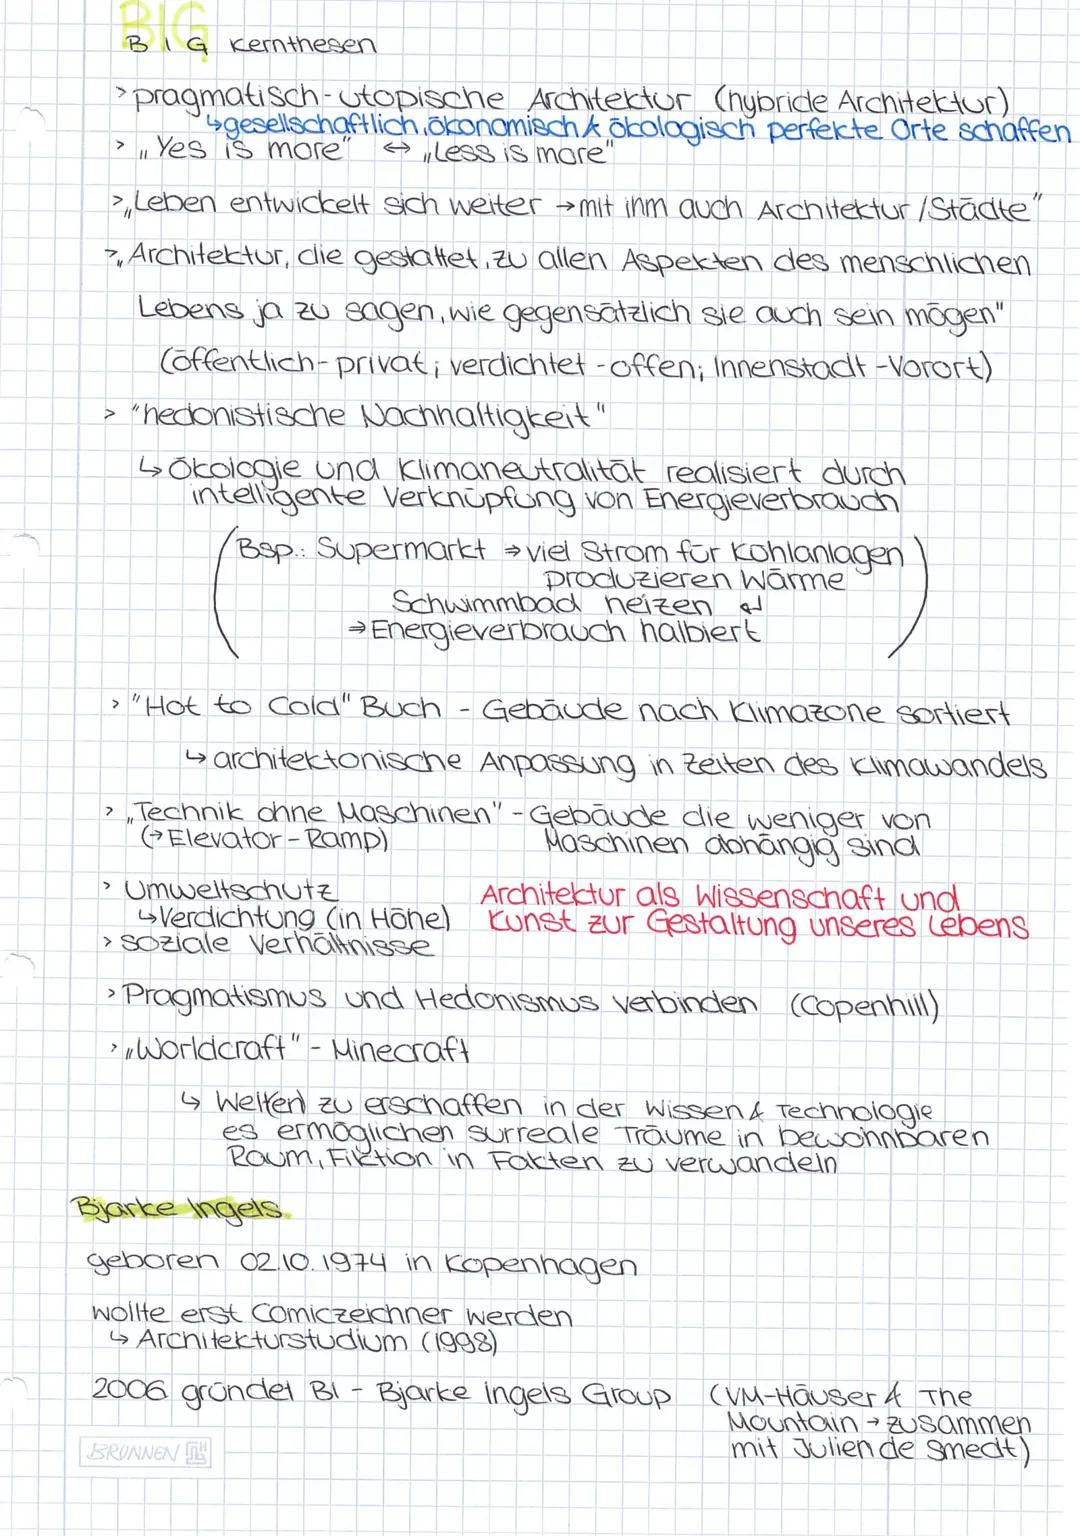 BIG
B I G Kernthesen
> pragmatisch-utopische Architektur (hybride Architektur)
↳ gesellschaftlich, ökonomisch & ökologisch perfekte Orte schaffen
> „Yes is more" ↔ „Less is more"
> „Leben entwickelt sich weiter → mit ihm auch Architektur / Städte"
> „Architektur, die gestattet, zu allen Aspekten des menschlichen
Lebens ja zu sagen, wie gegensätzlich sie auch sein mögen"
(öffentlich-privat; verdichtet-offen; Innenstadt-Vorort)
> "hedonistische Nachhaltigkeit"
↳ Ökologie und Klimaneutralität realisiert durch
intelligente Verknüpfung von Energieverbrauch
(Bsp.: Supermarkt ⇒ viel Strom für Kühlanlagen
produzieren Wärme
Schwimmbad heizen ↵
⇒ Energieverbrauch halbiert)
> "Hot to Cold" Buch - Gebäude nach Klimazone sortiert
↳ architektonische Anpassung in Zeiten des Klimawandels
> „Technik ohne Maschinen" - Gebäude die weniger von
(→ Elevator-Ramp) Maschinen abhängig sind
> Umweltschutz Architektur als Wissenschaft und
↳ Verdichtung (in Höhe) Kunst zur Gestaltung unseres Lebens
> soziale Verhältnisse
> Pragmatismus und Hedonismus verbinden (Copenhill)
> „Worldcraft" - Minecraft
↳ Welt(en) zu erschaffen in der Wissen & Technologie
es ermöglichen surreale Träume in bewohnbaren
Raum, Fiktion in Fakten zu verwandeln
Bjarke Ingels
geboren 02.10.1974 in Kopenhagen
wollte erst Comiczeichner werden
↳ Architekturstudium (1998)
2006 gründet BI - Bjarke Ingels Group (VM-Häuser & The
Mountain → zusammen
mit Julien de Smedt)
BRUNNEN